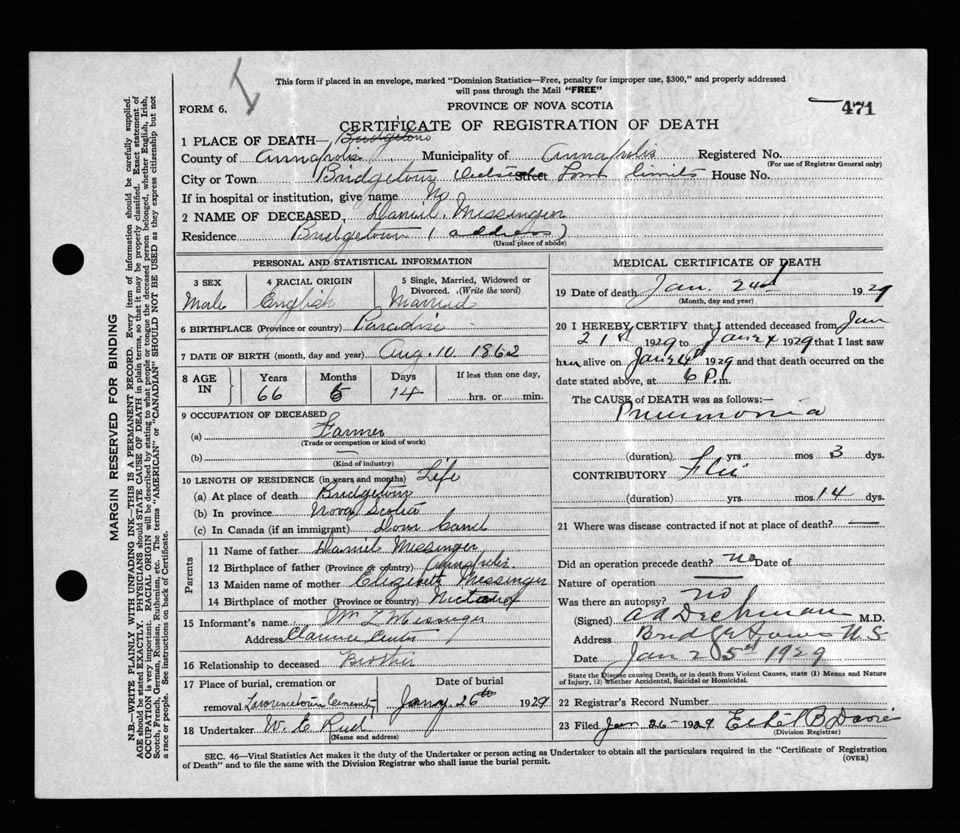 This form if placed in an envelope, marked "Dominion Statistics—Free, penalty for improper use, $300," and properly addressed
will pass through the Mail "FREE"
FORM 6.
PROVINCE OF NOVA SCOTIA
471
CERTIFICATE OF REGISTRATION OF DEATH
1 PLACE OF DEATH—
County of Annapolis Municipality of Annapolis Registered No.
(For use of Registrar General only)
City or Town Bridgetown Outside Street Town Limits House No.
If in hospital or institution, give name No
2 NAME OF DECEASED, Daniel Messinger
Residence Bridgetown (address)
(Usual place of abode)
PERSONAL AND STATISTICAL INFORMATION
3 SEX 4 RACIAL ORIGIN 5 Single, Married, Widowed or
Divorced. (Write the word)
Male English Married
6 BIRTHPLACE (Province or country) Paradise
7 DATE OF BIRTH (month, day and year) Aug. 10. 1862
8 AGE IN Years Months Days If less than one day,
66 5 14 hrs. or min.
9 OCCUPATION OF DECEASED
(a) Farmer
(Trade or occupation or kind of work)
(b)
(Kind of industry)
10 LENGTH OF RESIDENCE (in years and months) Life
(a) At place of death Bridgetown
(b) In province Nova Scotia
(c) In Canada (if an immigrant) Dom Cand
Parents
11 Name of father Daniel Messinger
12 Birthplace of father (Province or country) Annapolis
13 Maiden name of mother Elizabeth Messinger
14 Birthplace of mother (Province or country)
15 Informant's name Wm L Messinger
Address Clarence Centre
16 Relationship to deceased Brother
17 Place of burial, cremation or Date of burial
removal Lawrencetown Cemetery Jany 26th 1929
18 Undertaker W. E. Reed
(Name and address)
MEDICAL CERTIFICATE OF DEATH
19 Date of death Jan. 24 1929
(Month, day and year)
20 I HEREBY CERTIFY that I attended deceased from Jan
21st 1929 to Jan 24 1929 that I last saw
him alive on Jan 24th 1929 and that death occurred on the
date stated above, at 6 P.m.
The CAUSE of DEATH was as follows:—
Pneumonia
(duration) yrs mos 3 dys.
CONTRIBUTORY Flu
(duration) yrs mos 14 dys.
21 Where was disease contracted if not at place of death? —
Did an operation precede death? no Date of
Nature of operation —
Was there an autopsy? no
(Signed) A A Dechman M.D.
Address Bridgetown N.S.
Date Jan 25th 1929
State the Disease causing Death, or in death from Violent Causes, state (1) Means and Nature
of Injury, (2) whether Accidental, Suicidal or Homicidal.
22 Registrar's Record Number
23 Filed Jan 26-1929 Ethel B
(Division Registrar)
SEC. 46—Vital Statistics Act makes it the duty of the Undertaker or person acting as Undertaker to obtain all the particulars required in the "Certificate of Registration
of Death" and to file the same with the Division Registrar who shall issue the burial permit.
(OVER)
MARGIN RESERVED FOR BINDING
N.B.—WRITE PLAINLY WITH UNFADING INK—THIS IS A PERMANENT RECORD. Every item of information should be carefully supplied.
AGE should be stated EXACTLY. PHYSICIANS should STATE CAUSE OF DEATH in plain terms, so that it may be properly classified. Exact statement of
OCCUPATION is very important. RACIAL ORIGIN will be described by stating to what people or tongue the deceased person belonged, whether English, Irish,
Scotch, French, German, Russian, Ruthenian, etc. The terms "AMERICAN" or "CANADIAN" SHOULD NOT BE USED as they express citizenship but not
a race or people. See instructions on back of Certificate.